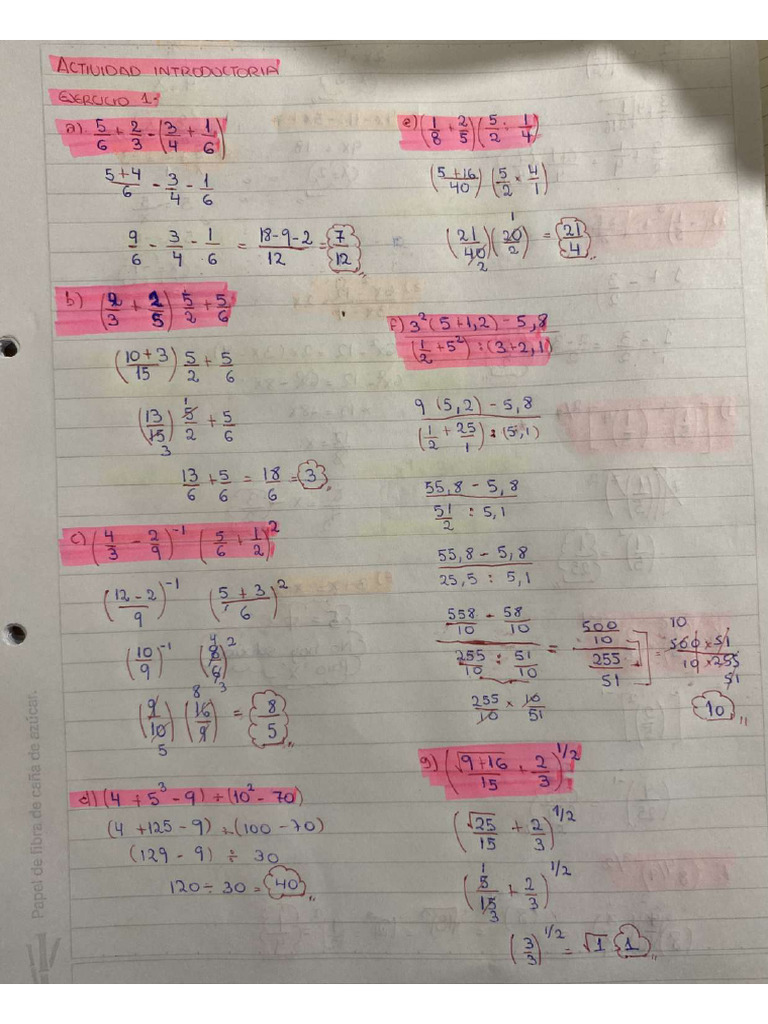 ACTIVIDAD INTRODUCTORIA
EJERCICIO 1.-
a) 5/6 + 2/3 - (3/4 + 1/6)
(5+4)/6 - 3/4 - 1/6
9/6 - 3/4 - 1/6 = (18-9-2)/12 = 7/12
b) (2/3 + 1/5) 5/2 + 5/6
((10+3)/15) 5/2 + 5/6
1
(13/15) 5/2 + 5/6
3
13/6 + 5/6 = 18/6 = 3
c) (4/3 - 2/9)^-1 (5/6 + 1/2)^2
((12-2)/9)^-1 ((5+3)/6)^2
4
(10/9)^-1 (8/6)^2
3
8
(9/10) (16/9) = 8/5
5
d) (4 + 5^3 - 9) ÷ (10^2 - 70)
(4 + 125 - 9) ÷ (100 - 70)
(129 - 9) ÷ 30
120 ÷ 30 = 40
e) (1/8 + 2/5) (5/2 ÷ 1/4)
((5+16)/40) (5/2 × 4/1)
1
(21/40) (20/2) = 21/4
2
f) 3^2 (5+1,2) - 5,8
(1/2 + 5^2) : (3+2,1)
9 (5,2) - 5,8
(1/2 + 25/1) : (5,1)
55,8 - 5,8
51/2 : 5,1
55,8 - 5,8
25,5 : 5,1
558/10 - 58/10 = 500/10 = 500 × 51
255/10 : 51/10 255/51 10 × 255
10
51
255/10 × 10/51
10
g) (√(9+16)/15 + 2/3)^1/2
(√25/15 + 2/3)^1/2
1
(5/15 + 2/3)^1/2
3
(3/3)^1/2 = √1 1
Papel de fibra de caña de azúcar.